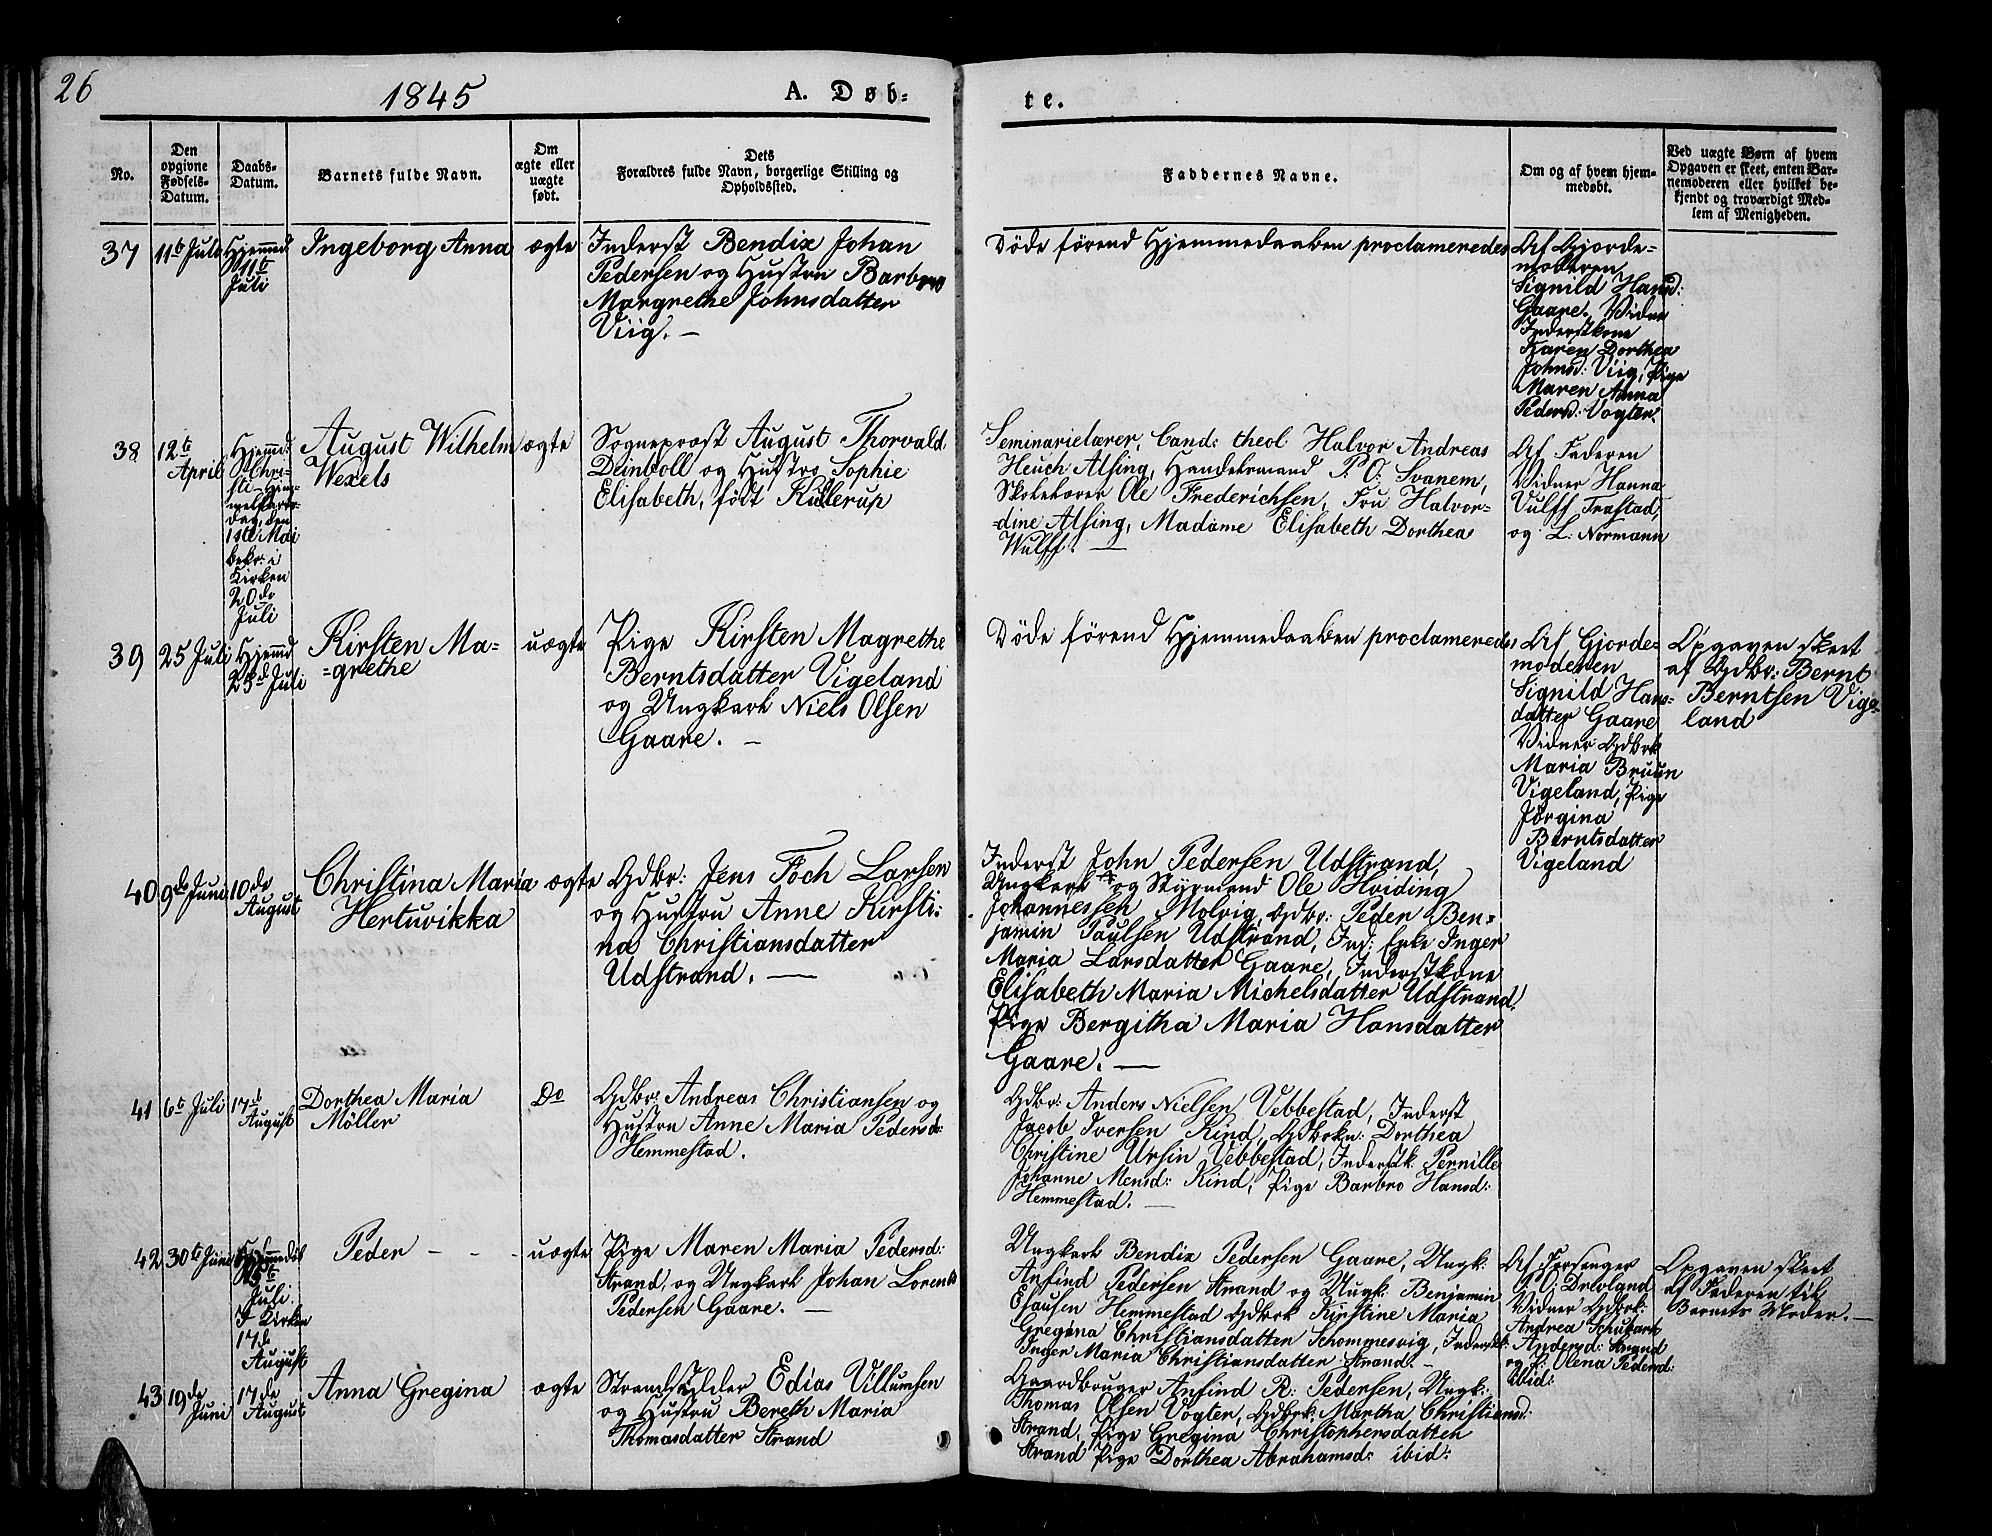 26
1845
A. Døb-
te.
No.
Den
opgivne
Fødsels-
Datum.
Daabs-
Datum.
Barnets fulde Navn.
Om
ægte eller
uægte
født.
Dets
Forældres fulde Navn, borgerlige Stilling og
Opholdssted.
Faddernes Navne.
Om og af hvem hjem-
medøbt.
Ved uægte Børn af hvem
Opgaven er skeet, enten Bar-
nemoderen eller hvilket be-
kjendt og troværdigt Med-
lem af Menigheden.
37
11te Juli
Hjemmed
11te
Juli
Ingeborg Anna
ægte
Inderst Bendix Johan
Pedersen og Hustru Barbro
Margrethe Johnsdatter
Viig. —
Døde førend Hjemmedaaben proclameredes
Af Gjorde-
moderen
Signild Hansd:
Gaare. Vidner
Inderstkone
Karen Dorthea
Johnsd: Viig, Pige
Maren Anna
Pedersd: Vogter.
38
12te
April
Hjemmd:
Chri-
sti Him-
melfarts-
dag, den
1ste Mai
bekr: i
Kirken
20de
Juli
August Wilhelm
Wexels
ægte
Sogneprest August Thorvald
Deinboll og Hustro Sophie
Elisabeth, født Kullerup
Seminarielærer, Cand: theol Halvor Andreas
Heuch Alsing, Handelsmand P. O. Svanem,
Skolelærer Ole Frederichsen, Fru Halvor-
=dine Alsing, Madame Elisabeth Dorthea
Wulff. —
Af Faderen
Vidner Hanna
Vulff Trastad,
og L: Normann
39
25 Juli
Hjemmd
25d Juli
Kirsten Ma-
=grethe
uægte
Pige Kirsten Magrethe
Berntsdatter Vigeland
og Ungkarl Niels Olsen
Gaare. —
Døde førend Hjemmedaaben proclameredes
Af Gjorde-
moderen
Signild Hans-
datter Gaare
Vidner Gdbrk
Maria Bruun
Vigeland, Pige
Jørgina
Berntsdatter
Vigeland
Opgaven skeet
af Gdbr: Bernt
Berntsen Vige-
land
40
9de Juni
10de
August
Christina Maria
Hertuvikka
ægte
Gdbr: Jens Foch Larsen
og Hustru Anne Kirsti:
na Christiansdatter
Udstrand. —
Inderst John Pedersen Udstrand,
Ungkarl og Styrmand Ole Hviding
Johannessen Molvig, Gdbr: Peder Ben-
jamin Paulsen Udstrand, Ind: Enke Inger
Maria Larsdatter Gaare, Inderstkone
Elisabeth Maria Michelsdatter Udstrand,
Pige Bergitha Maria Hansdatter
Gaare. —
41
6te Juli
17de
August
Dorthea Maria
Möller
Do
Gdbr: Andreas Christiansen og
Hustru Anne Maria Pedersd:
Hemmestad.
Gdbr: Anders Nielsen Vebbestad, Inderst
Jacob Iversen Kind, Gdbrkn: Dorthea
Christine Ursin Vebbestad, Inderstk. Pernille
Johanne Mensd: Kind, Pige Barbro Hansd:
Hemmestad. —
42
30te Juni
Hjemmedøbt
Juli.
I Kirken
17de
August
Peder - - -
uægte
Pige Maren Maria Pedersd:
Strand, og Ungkarl Johan Lorents
Pedersen Gaare. —
Ungkarl Bendix Pedersen Gaare, Ungk.
Anfind Pedersen Strand og Ungk. Benjamin
Esausen Hemmestad Gdbrk Kirstine Maria
Gregina Christiansdatter Schommesvig, Inderstk:
Inger Maria Christiansdatter Strand. —
Af Forsanger
P. O: Drevland
Vidner Gdbrk:
Andrea Schubart
Andersd: Strand
og P: Olena Pedersd:
ibid:
Opgaven skeet
af Faderen til
Barnets Moder. —
43
19de
Juni
17de
August
Anna Gregina
ægte
Strandsidder Edias Villumsen
og Hustru Bereth Maria
Thomasdatter Strand
Gaardbruger Anfind R: Pedersen, Ungk:
Thomas Olsen Vogter, Gdbrk. Martha Christiansd:
Strand, Pige Gregina Christophersdatter
Strand Pige Dorthea Abrahamsd: ibid: